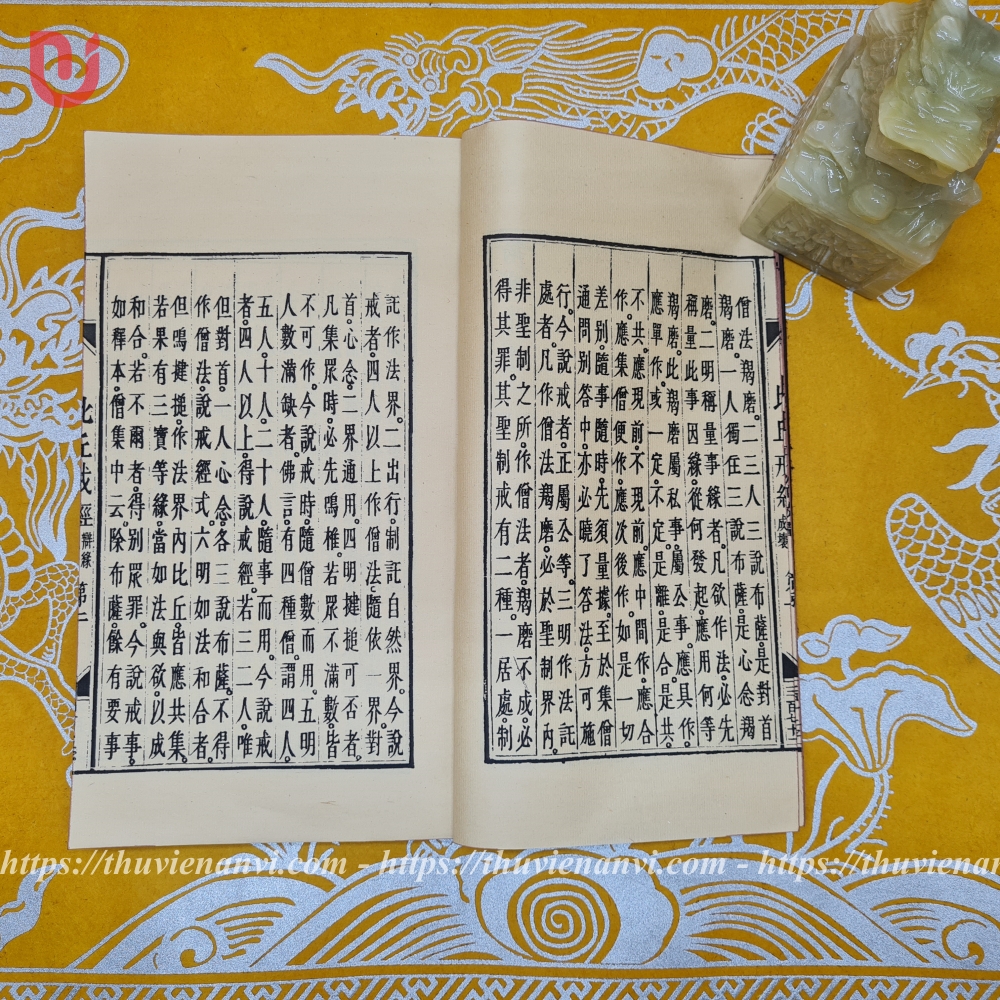 僧法羯磨。二三人三說布薩。是對首
羯磨。一人獨住三說布薩。是心念羯
磨。二明稱量事緣者。凡欲作法。必先
稱量此事因緣。從何發起。應用何等
羯磨。此羯磨屬私事。屬公事。應具作。
應單作。或一定。不定。是離是合是共。
不共。應現前。不現前。應中間作。應合
作。應集僧便作。應次後作。如是一切
差別。隨事隨時。先須量據。至於集僧
通問別答中。亦必曉了答法。方可施
行。今說戒者。正屬公等。三明作法託
處者。凡作僧法羯磨。必於聖制界內。
非聖制之所作僧法者。羯磨不成。必
得其罪。其聖制戒有二種。一居處。制
託作法界。二出行。制託自然界。今說
戒者。四人以上作僧法。隨依一界。對
首。心念。二界通用。四明揵搥可否者。
凡集眾時。必先鳴椎。若眾不滿數。皆
不可作。今說戒時。隨僧數而用。五明
人數滿缺者。佛言。有四種僧。謂四人。
五人。十人。二十人。隨事而用。今說戒
者。四人以上。得說戒經。若三二人。唯
但對首。一人心念。各三說布薩。不得
作僧法。說戒經式。六明如法和合者。
但鳴揵搥。作法界內比丘。皆應共集。
若果有三寶等緣。當如法與欲。以成
和合。若不爾者。得別眾罪。今說戒事。
如釋本。僧集中云。除布薩。餘有要事
比丘戒經
https://thuvienanvi.com - https://thuvienanvi.com - https://thuvienanvi